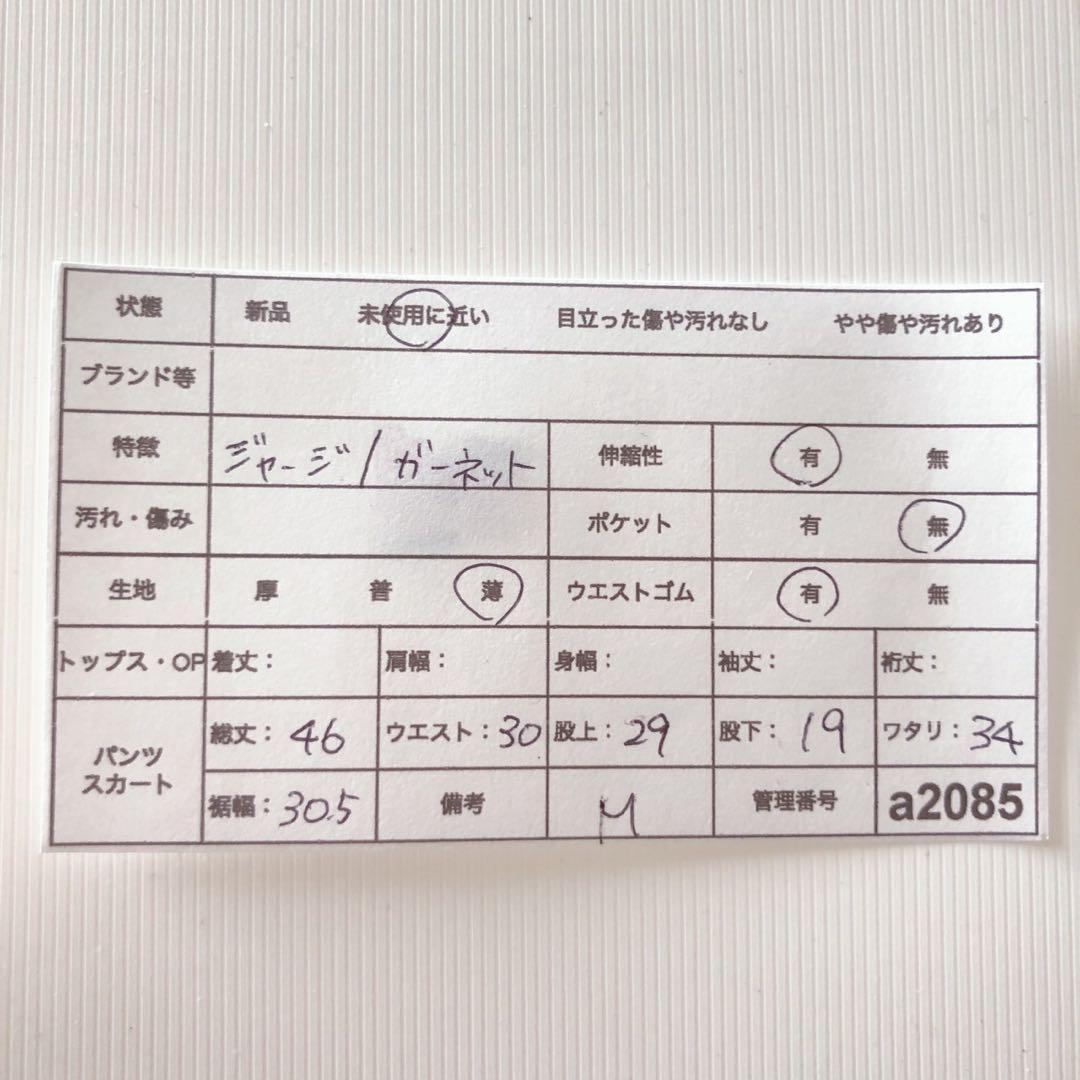 状態 新品 未使用に近い 目立った傷や汚れなし やや傷や汚れあり
ブランド等
特徴 ジャージ/ガーネット 伸縮性 有 無
汚れ・傷み ポケット 有 無
生地 厚 普 薄 ウエストゴム 有 無
トップス・OP 着丈： 肩幅： 身幅： 袖丈： 裄丈：
パンツ スカート 総丈：46 ウエスト：30 股上：29 股下：19 ワタリ：34
裾幅：30.5 備考 M 管理番号 a2085